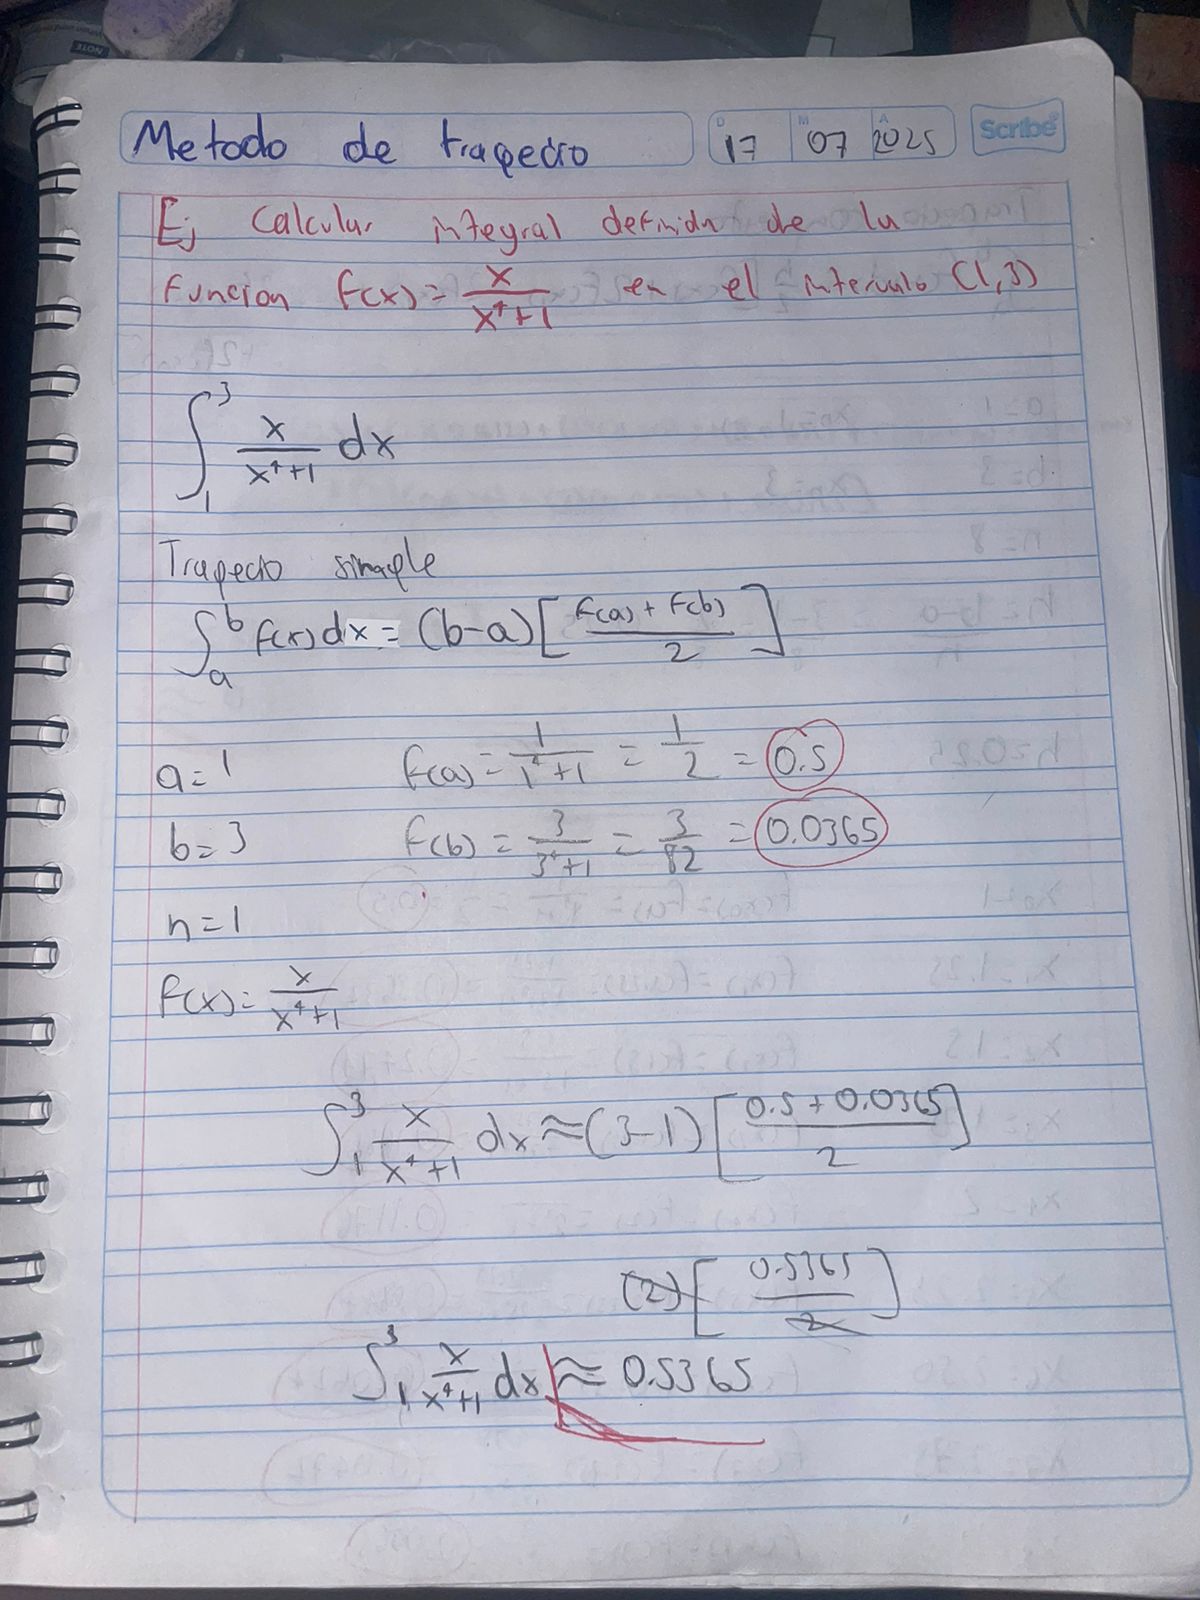 NOTE
Metodo de trapecio
D 17 M 07 A 2025
Scribe
Ej Calcular integral definida de la
funcion f(x)= x/(x⁴+1) en el intervalo (1,3)
∫₁³ x/(x⁴+1) dx
Trapecio simple
∫ₐᵇ f(x)dx = (b-a)[(f(a)+f(b))/2]
a=1 f(a)= 1/(1⁴+1) = 1/2 = 0.5
b=3 f(b)= 3/(3⁴+1) = 3/82 = 0.0365
n=1
f(x)= x/(x⁴+1)
∫₁³ x/(x⁴+1) dx ≈ (3-1)[(0.5+0.0365)/2]
(2)[0.5365/2]
∫₁³ x/(x⁴+1) dx ≈ 0.5365